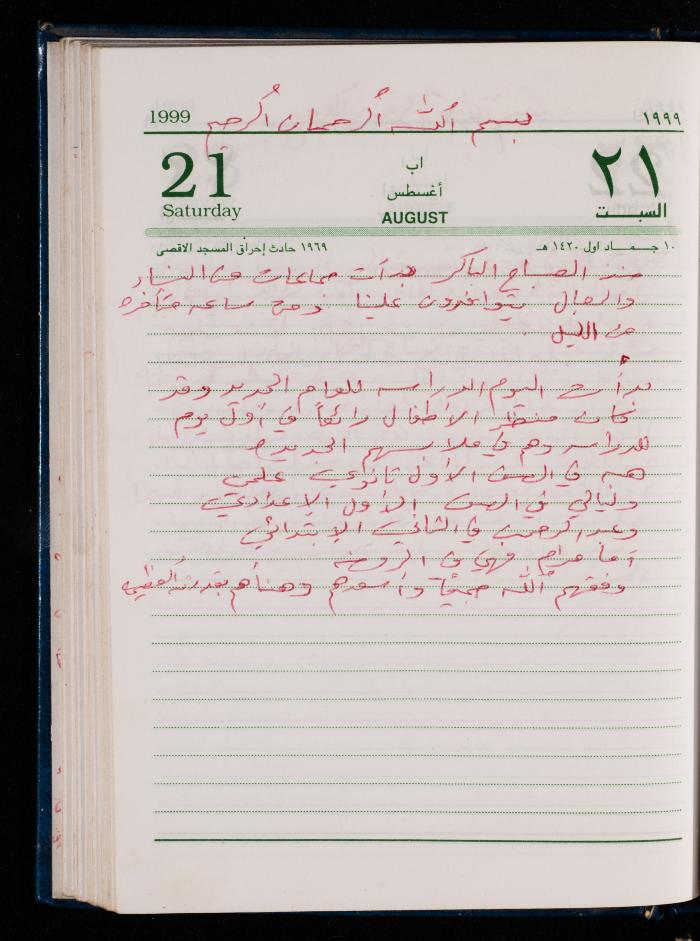 1999 بسم الله الرحمان الرحيم ١٩٩٩
21 اب ٢١
أغسطس
Saturday AUGUST السبت
١٠ جمـاد اول ١٤٢٠ هـ ١٩٦٩ حادث إحراق المسجد الاقصى
منذ الصباح الباكر بدأت جماعات من النساء
والرجال يتوافدون علينا ومن ساعه متأخره
من الليل
بدأ اليوم الدراسه للعام الجديد وقد
كان منظر الأطفال رائعاً في أول يوم
للدراسه وهم في ملابسهم الجديده
هبه في الصف الأول ثانوي علمي
وليالي في الصف الأول الإعدادي
وعبد الرحمن في الثاني الإبتدائي
أما مرام فهي في الروضه
وفقهم الله جميعًا وأسعدهم